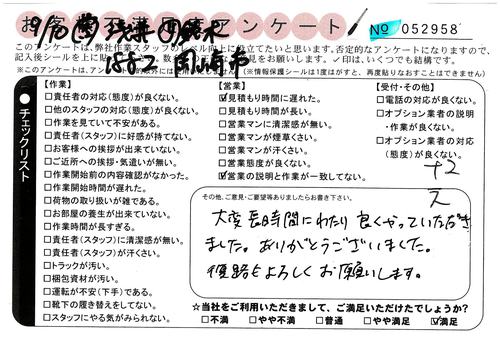 お客様不満足度アンケート
No 052958
このアンケートは、弊社作業スタッフのレベル向上に役立てたいと思います。否定的なアンケートになりますので、
記入後シールを上に
お願いします。✓印は、いくつでも結構です。
(※情報保護シールは1度はがすと、再度貼りなおすことはできません)
チェックリスト
【作業】
□責任者の対応(態度)が良くない。
□他のスタッフの対応(態度)が良くない。
□作業を見ていて不安がある。
□責任者(スタッフ)に好感が持てない。
□お客様への挨拶が出来ていない。
□ご近所への挨拶・気遣いが無い。
□作業開始前の内容確認がなかった。
□作業開始時間が遅れた。
□荷物の取り扱いが雑である。
□お部屋の養生が出来ていない。
□作業時間が長すぎる。
□責任者(スタッフ)に清潔感が無い。
□責任者(スタッフ)が汗くさい。
□トラックが汚い。
□梱包資材が汚い。
□運転が不安(下手)である。
□靴下の履き替えをしてない。
□スタッフにやる気がみられない。
【営業】
☑見積もり時間に遅れた。
□見積もり時間が長い。
□営業マンに清潔感が無い。
□営業マンが煙草くさい。
□営業マンが汗くさい。
□営業態度が良くない。
☑営業の説明と作業が一致してない。
【受付・その他】
□電話の対応が良くない。
□オプション業者の説明
・作業が良くない。
□オプション業者の対応
(態度)が良くない。
その他、ご意見・ご要望等ありましたらお書き下さい。
大変長時間にわたり良くやっていただき
ました。ありがとうございました。
復路もよろしくお願いします。
☆当社をご利用いただきまして、ご満足いただけたでしょうか?
□不満 □やや不満 □普通 □やや満足 ☑満足